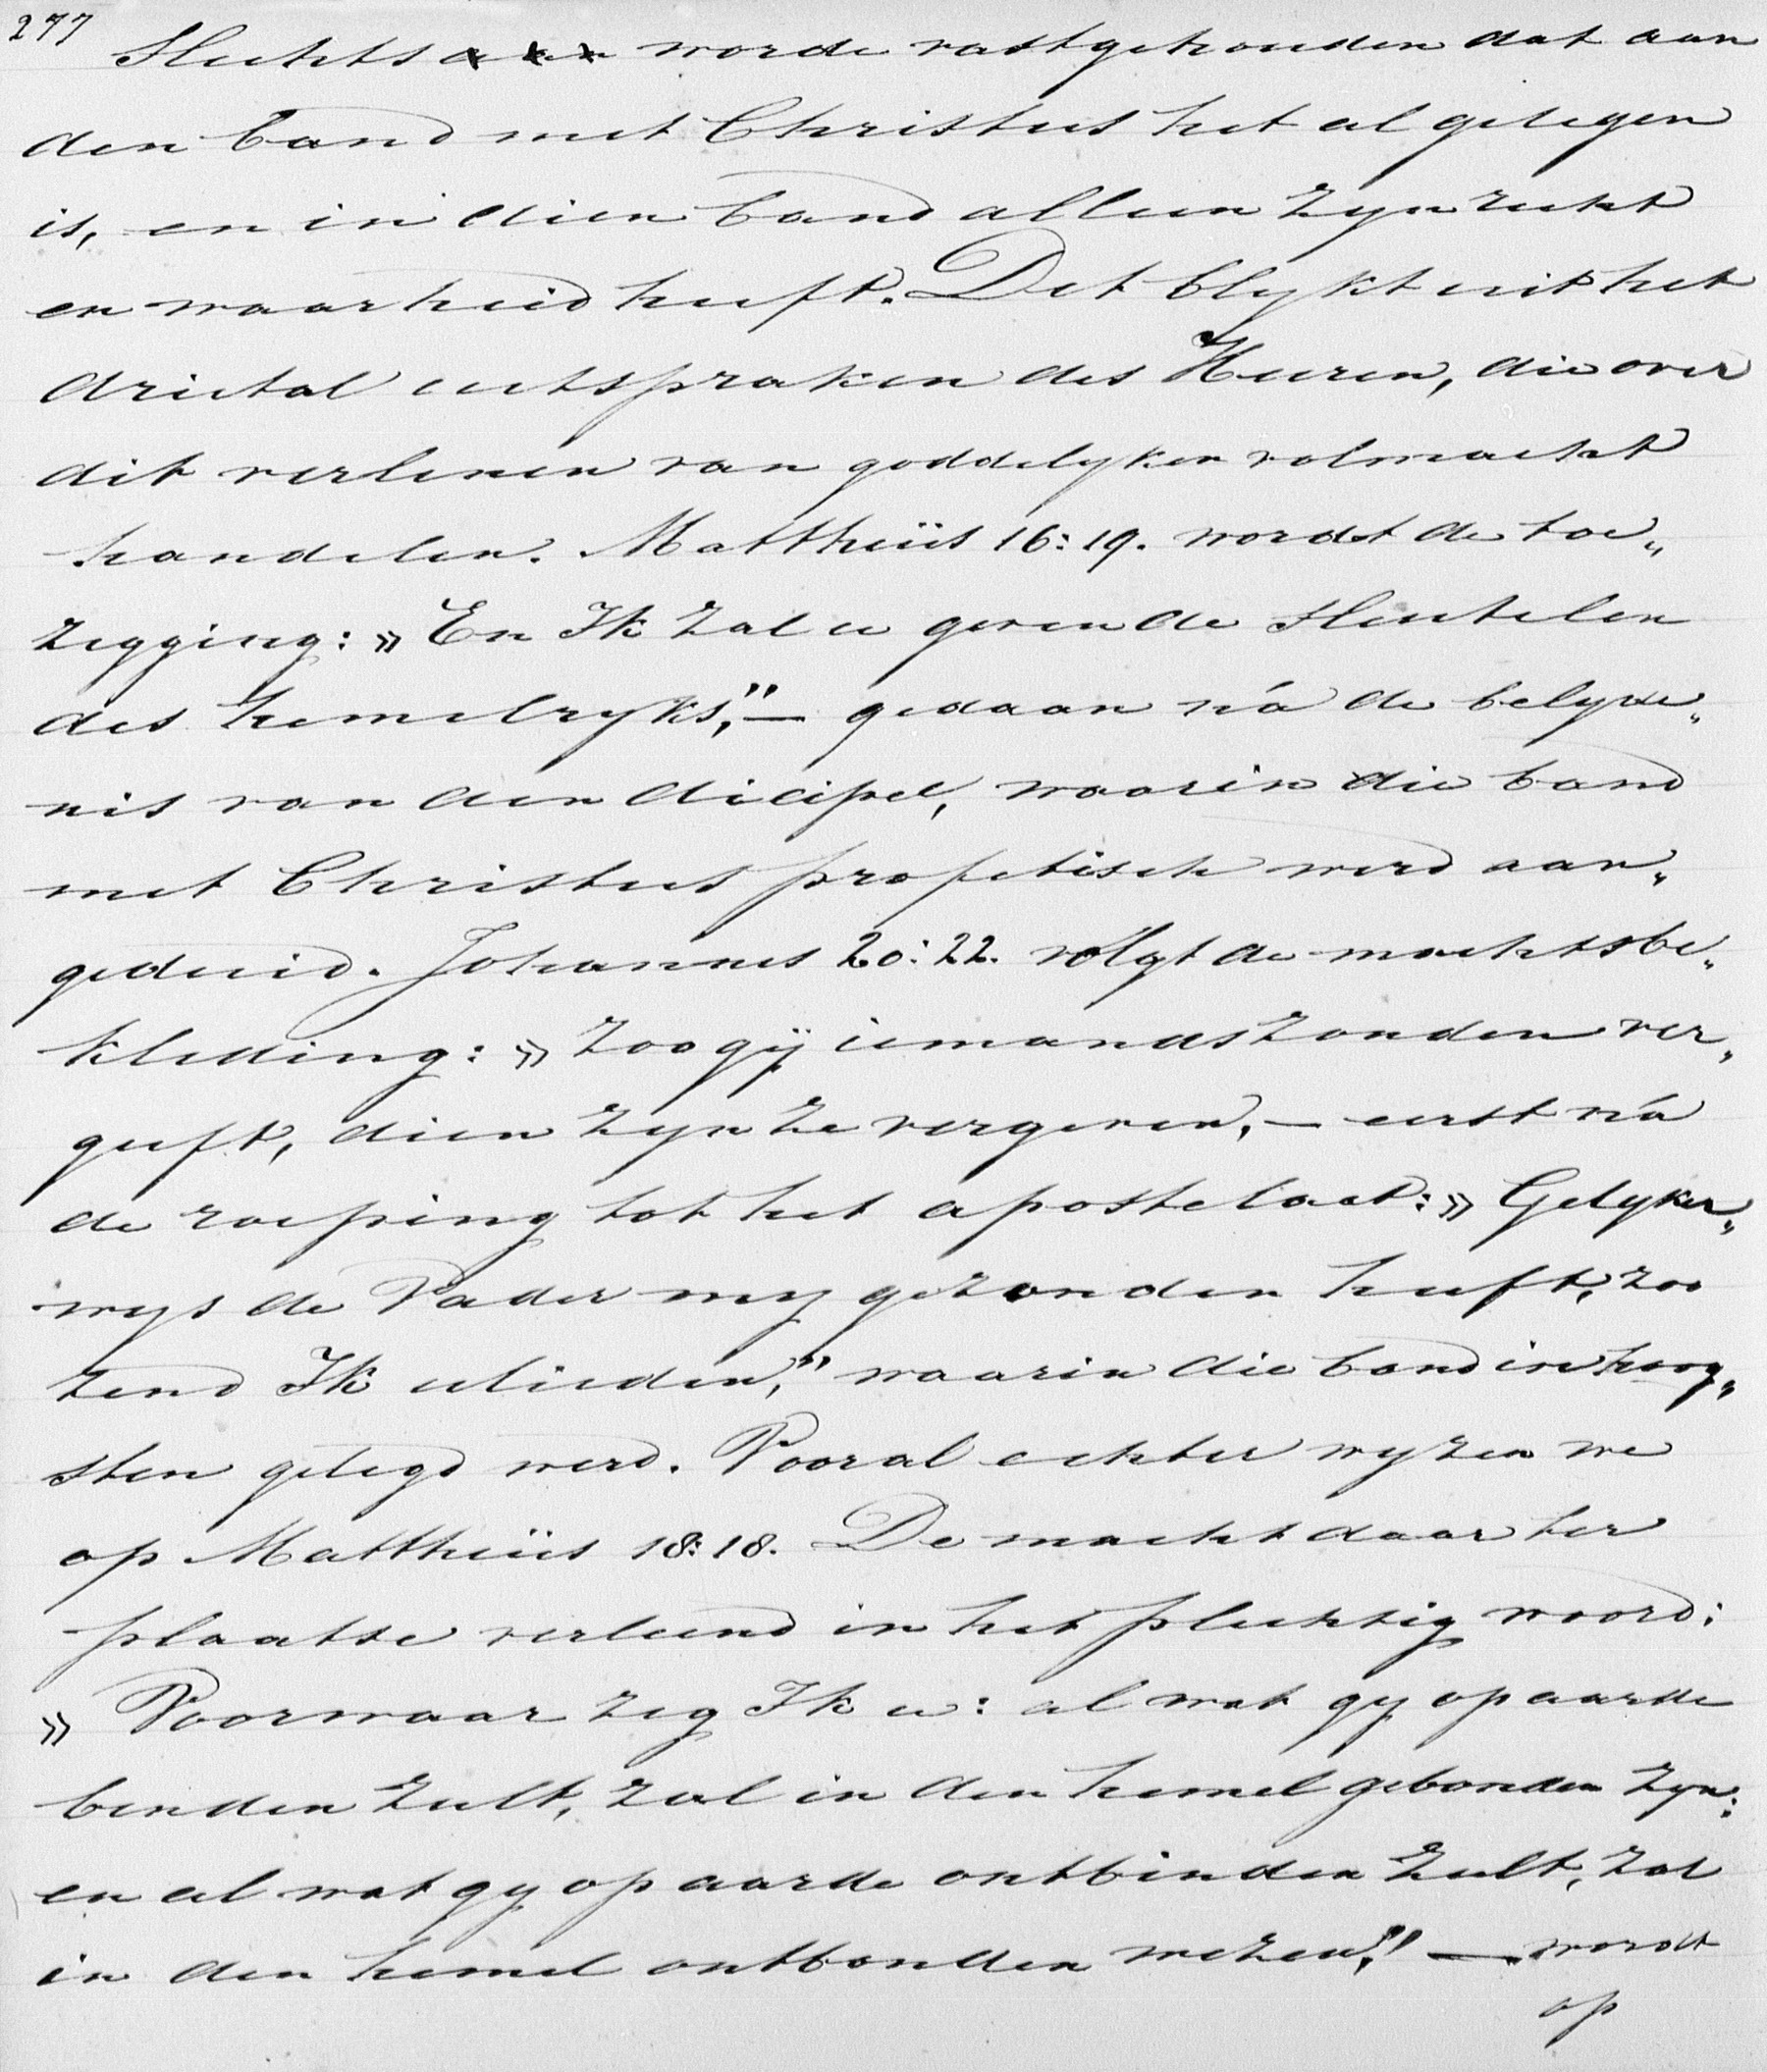 277
Slechts worde vastgehouden dat aan
den band met Christus het al gelegen
is, en in dien band alleen zyn recht
en waarheid heeft. Det blykt uit het
drietal uitspraken des Heeren, die over
dit verlenen van goddelyken volmacht
handelen. Mattheüs 16:19. wordt de toe„
zegging: » En Ik zal u geven de sleutelen
des hemelryks,” — gedaan ná de belyde„
nis van den dicipel, waarin die band
met Christus profetisch werd aan„
geduid. Johannes 20:22. volgt de machtsbe„
kleding: » Zoo gij iemands zonden ver„
geeft, dien zyn ze vergeven, — eerst ná
de roeping tot het apostelaat: » Gelyker„
wys de Vader my gezonden heeft, zoo
zend Ik ulieden,” waarin die band in hoog„
sten gelegd werd. Vooral echter wyzen we
op Mattheüs 18:18. De macht daar ter
plaatse verleend in het plechtig woord:
» Voorwaar zeg Ik u: al wat gy op aarde
binden zult, zal in den hemel gebonden zyn:
en al wat gy op aarde ontbinden zult, zal
in den hemel ontbonden wezen”! — wordt
op